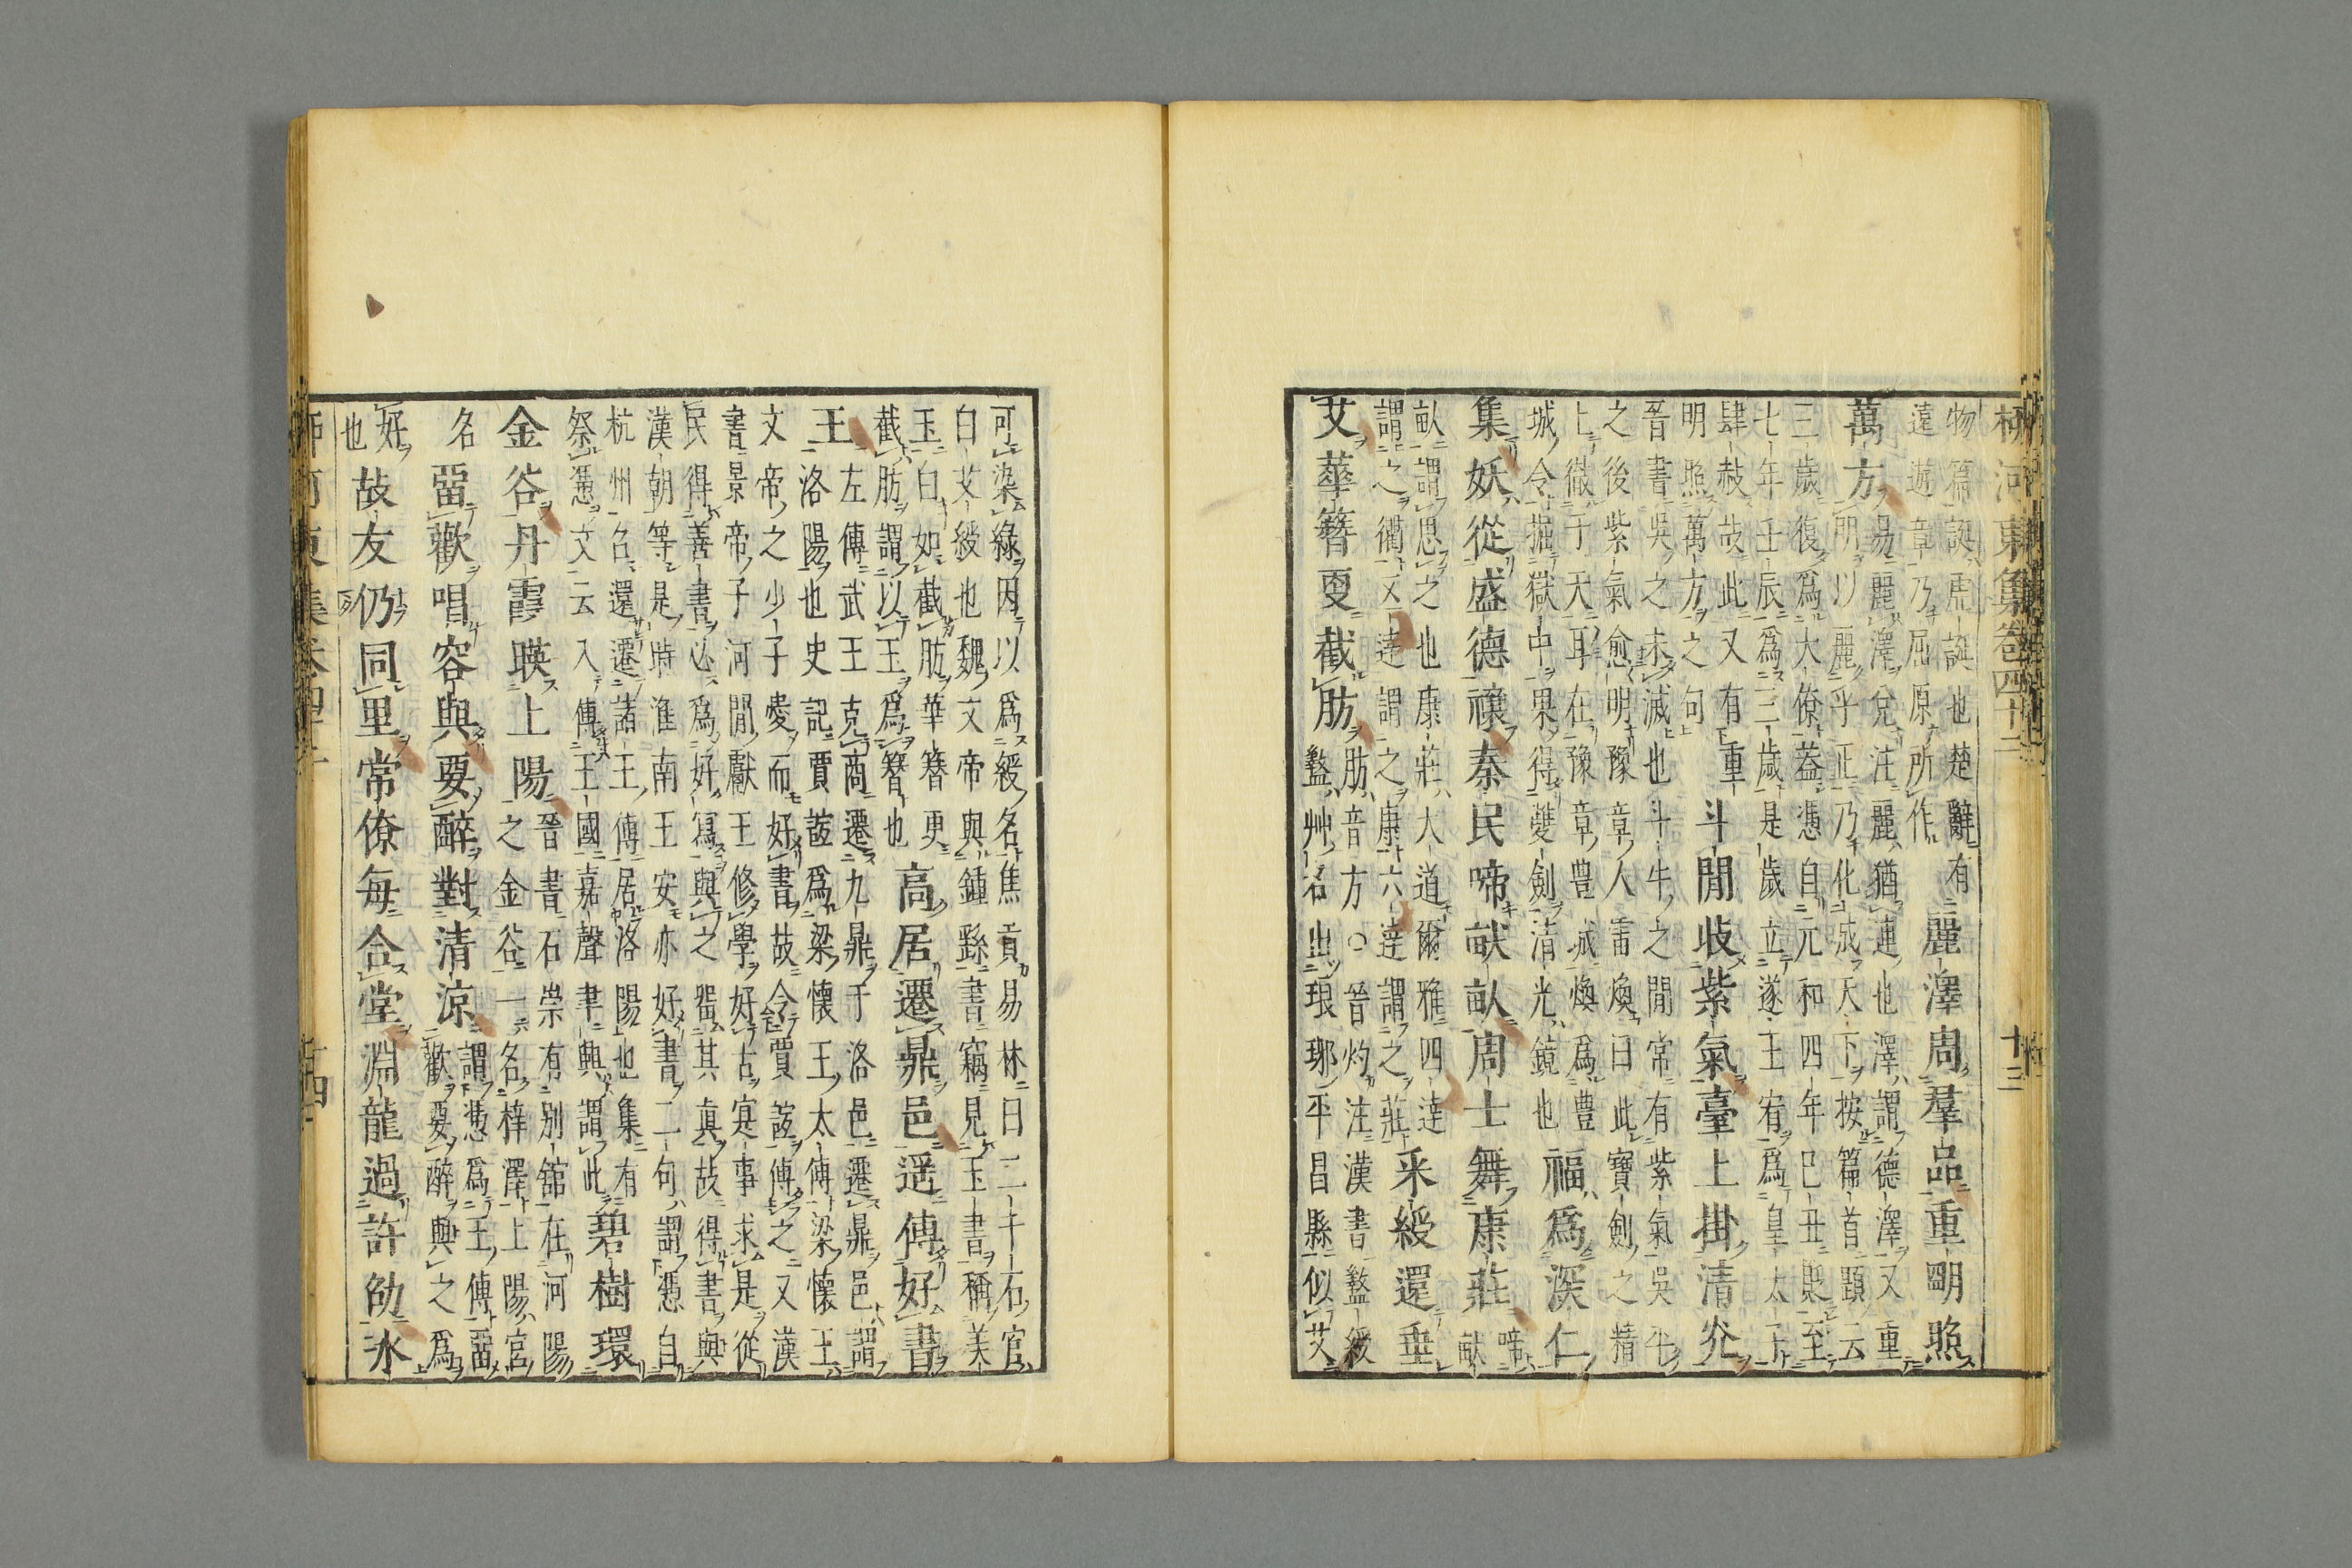 柳河東集卷四十二 十三
物篇誕虎誕也楚辭有
遠遊章乃屈原所作
麗澤周羣品重明照
萬方
易麗澤兌注麗猶連也澤謂德澤又重
明以麗乎正乃化成天下按篇首題云
三歲復爲大僚蓋憑自元和四年巳丑貶至
七年壬辰爲三歲是歲立遂王宥爲皇太子
肆赦故此又有重
明照萬方之句
斗閒收紫氣臺上掛清光
晉書吳之未滅也斗牛之閒常有紫氣吳平
之後紫氣愈明豫章人雷煥曰此寶劍之精
上徹于天耳在豫章豊城煥爲豊
城令掘獄中果得雙劍清光鏡也
福爲深仁
集妖從盛德禳秦民啼畎畝周士舞康莊
啼畎
畝謂思之也康莊大道爾雅四達
謂之衢五達謂之康六達謂之莊
采綬還垂
艾華簪更截肪
肪音方○晉灼注漢書盭綬
盭艸名出琅琊平昌縣似艾
可染綠因以爲綬名焦貢易林曰二千石官
白艾綬也魏文帝與鍾繇書竊見玉書稱美
玉白如截肪華簪更
截肪謂以玉爲簪也
高居遷鼎邑遥傅好書
王
左傳武王克商遷九鼎于洛邑遷鼎邑謂
洛陽也史記賈誼爲梁懷王太傅梁懷王
文帝之少子愛而好書故令賈誼傅之又漢
書景帝子河閒獻王修學好古寔事求是從
民得善書必爲好寫與之畱其真故得書與
漢朝等是時淮南王安亦好書二句謂憑自
杭州召還遷諸王傅居洛陽也集有
祭憑文云入傅王國嘉聲聿興謂此
碧樹環
金谷丹霞暎上陽
晉書石崇有別舘在河陽
之金谷一名梓澤上陽宮
名
畱歡唱容與要醉對清涼
謂憑爲王傅畱
歡要醉興之爲
好
也
故友仍同里常僚每合堂淵龍過許劭冰
柳河東集卷四十二 十四